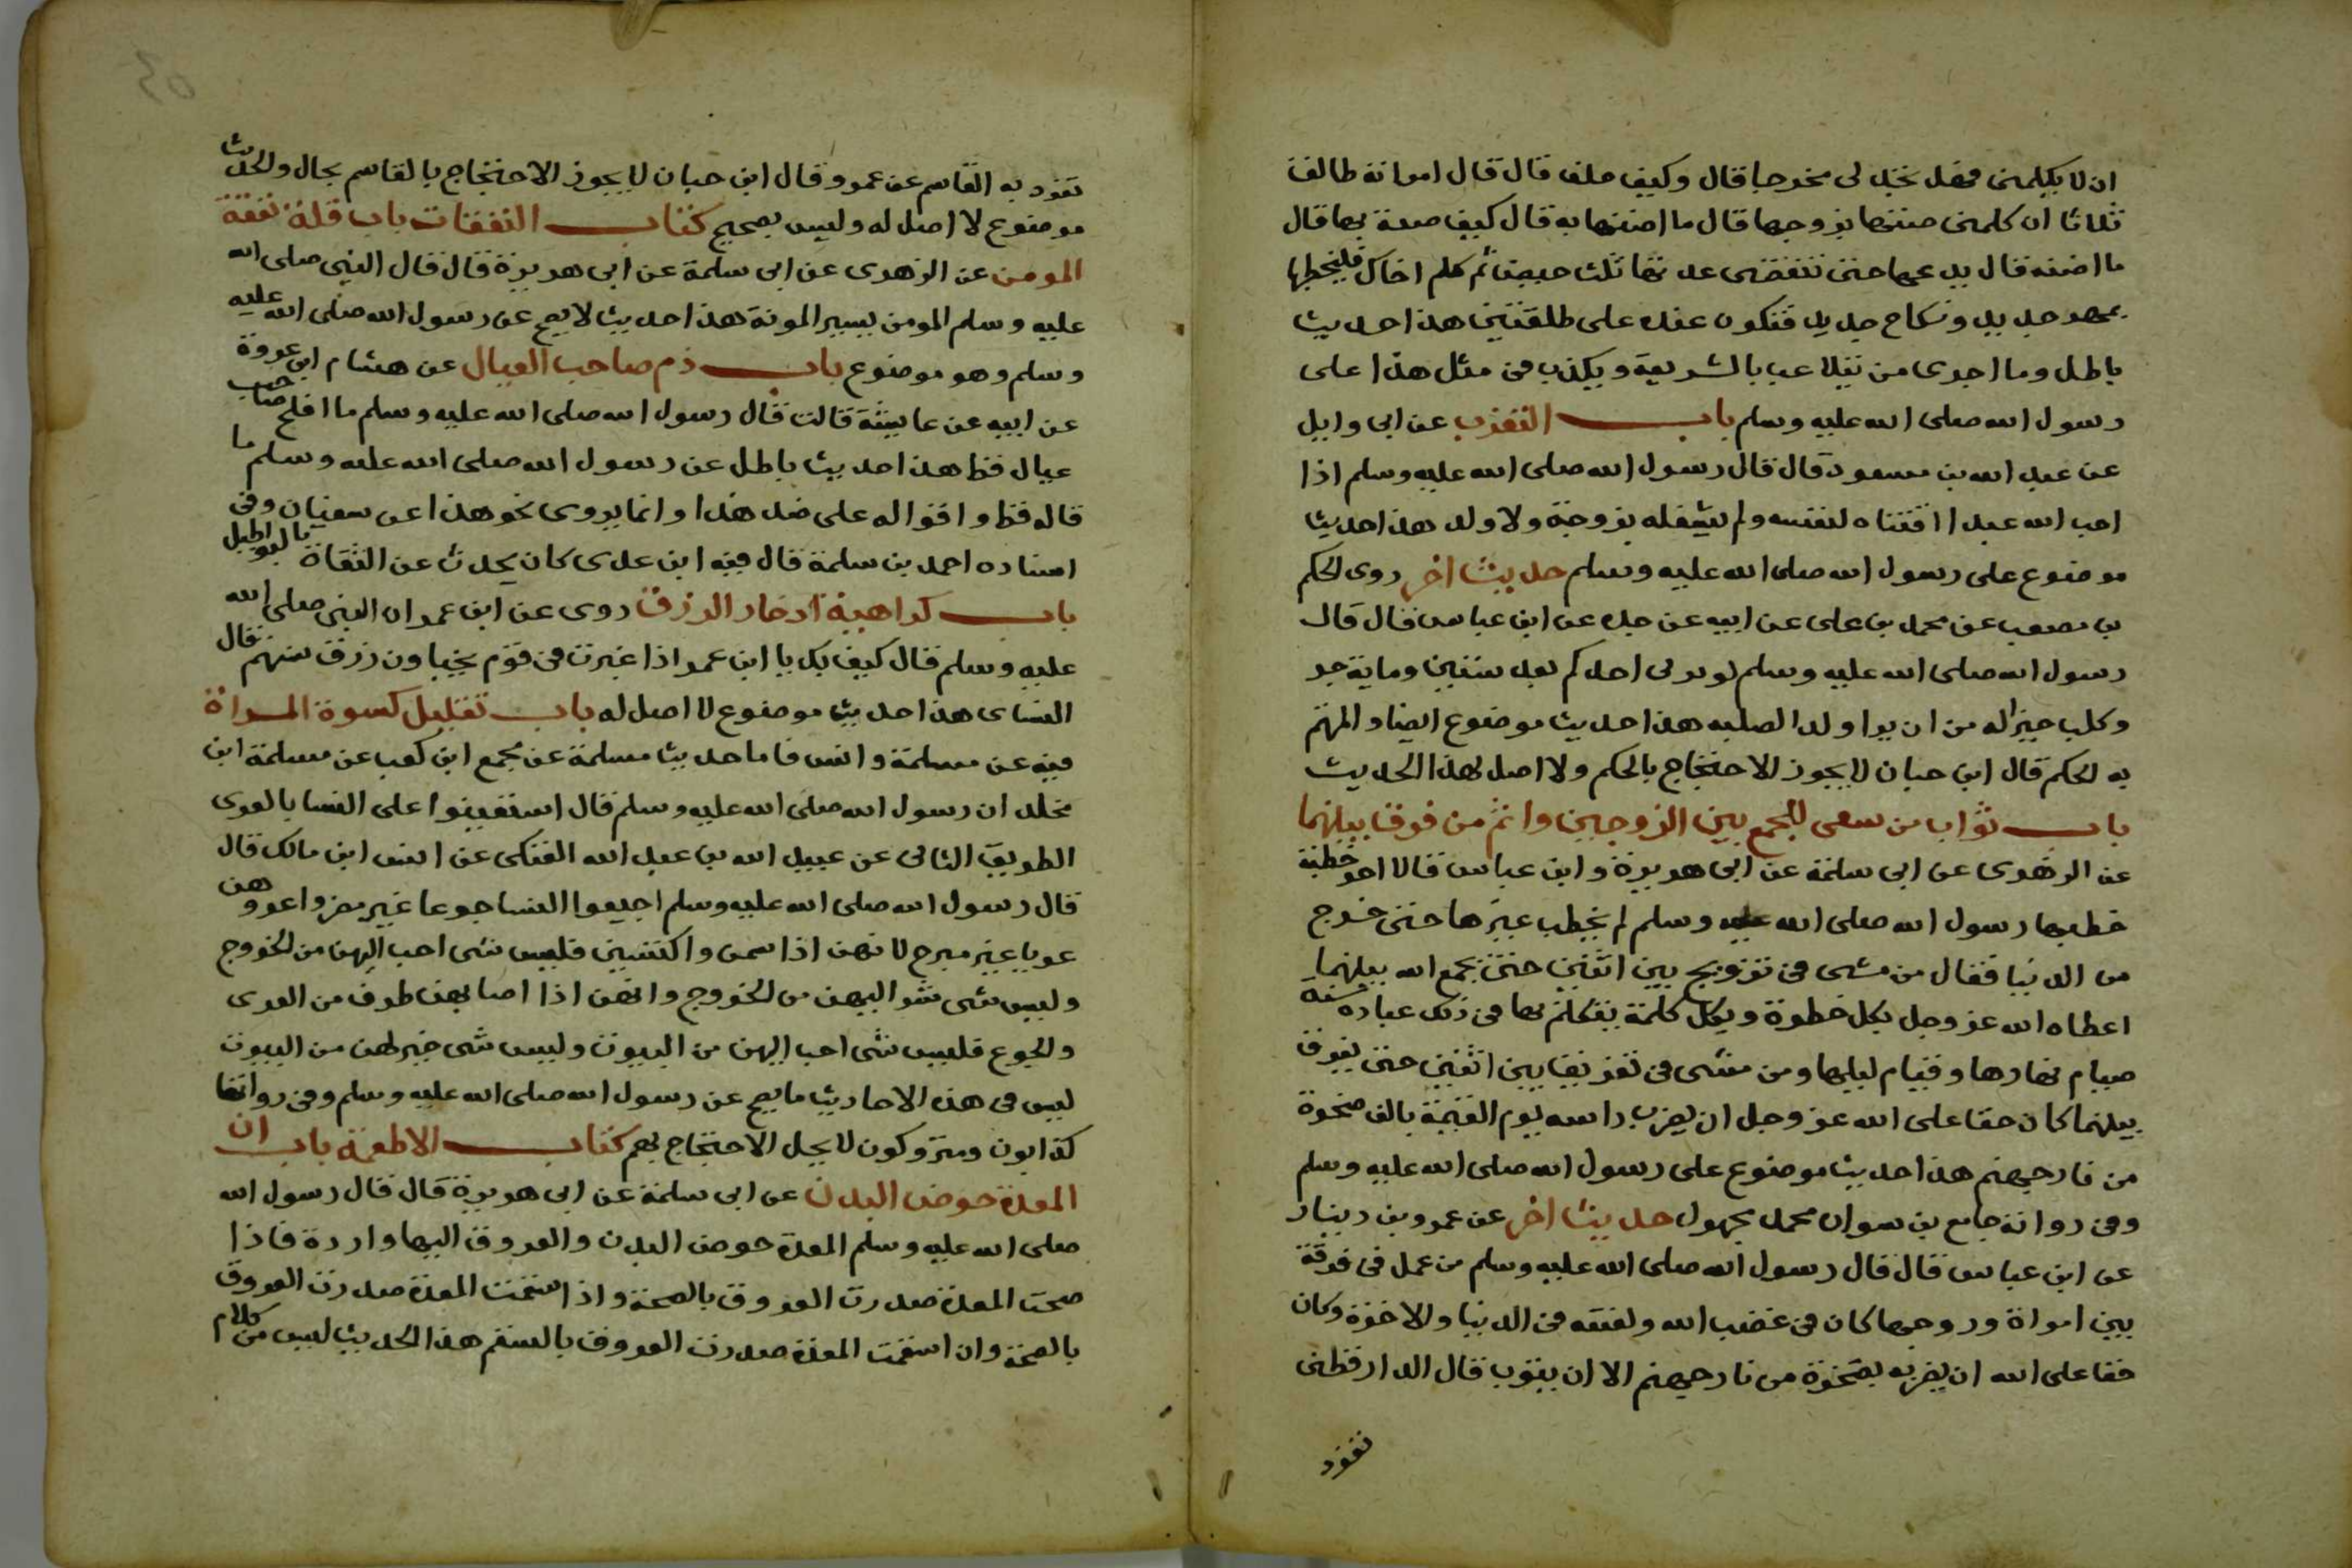 ان لا يكلمنى فهل تجد لى مخرجا قال وكيف حلف قال قال امراته طالق
ثلاثا ان كلمنى ختنها بزوجها قال ما اختنها به قال كيف صنعة بها قال
ما اختنه قال يدعها حتى تنقضى عدتها ثلث حيض ثم كلم اخاك فليخطبها
بمهر جديد ونكاح جديد فتكون عنده على طلقتين هذا حديث
باطل وما اجرى من يتلاعب بالشريعة ويكذب فى مثل هذا على
رسول الله صلى الله عليه وسلم باب التعزب عن ابى وايل
عن عبد الله بن مسعود قال قال رسول الله صلى الله عليه وسلم اذا
احب الله عبدا اقتناه لنفسه ولم يشغله بزوجة ولا ولد هذا حديث
موضوع على رسول الله صلى الله عليه وسلم حديث اخر روى الحكم
بن مصعب عن محمد بن على عن ابيه عن جده عن ابن عباس قال قال
رسول الله صلى الله عليه وسلم لو ربى احدكم بعد سنتين وماية جر
وكلب خير له من ان يرا ولد الصلبه هذا حديث موضوع ايضا والمتهم
به الحكم قال ابن حبان لا يجوز الاحتجاج بالحكم ولا اصل لهذا الحديث
باب ثواب من سعى للجمع بين الزوجين واثم من فرق بينهما
عن الزهرى عن ابى سلمة عن ابى هريرة وابن عباس قالا اخر خطبة
خطبها رسول الله صلى الله عليه وسلم لم يخطب غيرها حتى خرج
من الدنيا فقال من مشى فى تزويج بين اثنين حتى يجمع الله بينهما
اعطاه الله عز وجل بكل خطوة وبكل كلمة يتكلم بها فى ذلك عبادة سنة
صيام نهارها وقيام ليلها ومن مشى فى تفريق بين اثنين حتى يفرق
بينهما كان حقا على الله عز وجل ان يضرب راسه يوم القيمة بالف صخرة
من نار جهنم هذا حديث موضوع على رسول الله صلى الله عليه وسلم
وفى رواته جامع بن سوان محمد مجهول حديث اخر عن عمرو بن دينار
عن ابن عباس قال قال رسول الله صلى الله عليه وسلم من عمل فى فرقة
بين امراة وزوجها كان فى غضب الله ولعنته فى الدنيا والاخرة وكان
حقا على الله ان يضربه بصخرة من نار جهنم الا ان يتوب قال الدارقطنى
تفرد
تفرد به القاسم عن عمرو قال ابن حبان لا يجوز الاحتجاج بالقاسم بحال والحديث
موضوع لا اصل له وليس بصحيح كتاب النفقات باب قلة نفقة
المومن عن الزهرى عن ابى سلمة عن ابى هريرة قال قال النبى صلى الله
عليه وسلم المومن يسير المونة هذا حديث لا يصح عن رسول الله صلى الله عليه
وسلم وهو موضوع باب ذم صاحب العيال عن هشام ابن عروة
عن ابيه عن عايشة قالت قال رسول الله صلى الله عليه وسلم ما افلح صاحب
عيال قط هذا حديث باطل عن رسول الله صلى الله عليه وسلم ما
قاله قط واقواله على ضد هذا وانما يروى نحو هذا عن سفيان وفى
اسناده احمد بن سلمة قال فيه ابن عدى كان يحدث عن الثقاة بالبواطيل
باب كراهية ادخار الرزق روى عن ابن عمر ان النبى صلى الله
عليه وسلم قال كيف بك يا ابن عمر اذا غبرت فى قوم يخبا ون رزق سنتهم قال
النساى هذا حديث موضوع لا اصل له باب تقليل كسوة المراة
فيه عن مسلمة وانس فاما حديث مسلمة عن مجمع ابن كعب عن مسلمة ابن
مخلد ان رسول الله صلى الله عليه وسلم قال استعينوا على النسا بالعرى
الطريق الثانى عن عبيد الله بن عبد الله العتكى عن انس ابن مالك قال
قال رسول الله صلى الله عليه وسلم اجيعوا النسا جوعا غير مضر واعروهن
عريا غير مبرح لانهن اذا سمن واكتسين فليس شى احب اليهن من الخروج
وليس شى شر اليهن من الخروج وانهن اذا اصابهن طرف من العرى
والجوع فليس شى احب اليهن من البيوت وليس شى خير لهن من البيوت
ليس فى هذه الاحاديث ما يصح عن رسول الله صلى الله عليه وسلم وفى رواتها
كذابون ومتروكون لا يحل الاحتجاج بهم كتاب الاطعمة باب ان
المعدة حوض البدن عن ابى سلمة عن ابى هريرة قال قال رسول الله
صلى الله عليه وسلم المعدة حوض البدن والعروق اليها واردة فاذا
صحت المعدة صدرت العروق بالصحة واذا سقمت المعدة صدرت العروق
بالصحة وان اسقمت المعدة صدرت العروق بالسقم هذا الحديث ليس من كلام